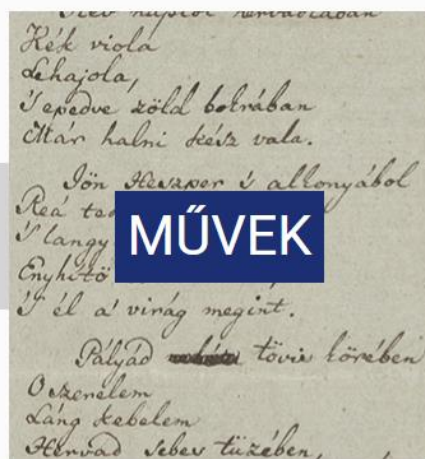 hervadtában
Kék viola
Lehajola,
S epedve zöld bokrában
Már halni kész vala.
Jön Heszper 's alkonyából
Reá
'S langy
Enyhítő
'S él a' virág megint.
Pályád tövis körében
O szerelem
Láng kebelem
Hervad sebes tüzében,
MŰVEK